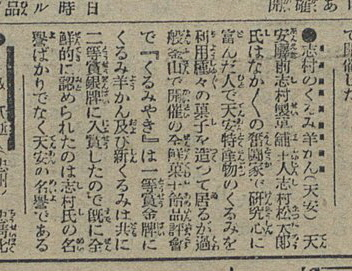 で開催した
●志村のくるみ羊かん（天安） 天
安驛前志村製菓舗主人志村松太郎
氏はなか〱の奮闘家で研究心に
富んだ人で天安特産物のくるみを
利用種々の菓子を造つて居るが過
般釜山で開催の全鮮菓子飴品評會
で『くるみやき』は一等賞金牌に
くるみ羊かん及び新くるみは共に
二等賞銀牌に入賞したので既に全
鮮的に認められたのは志村氏の名
譽ばかりでなく天安の名譽である